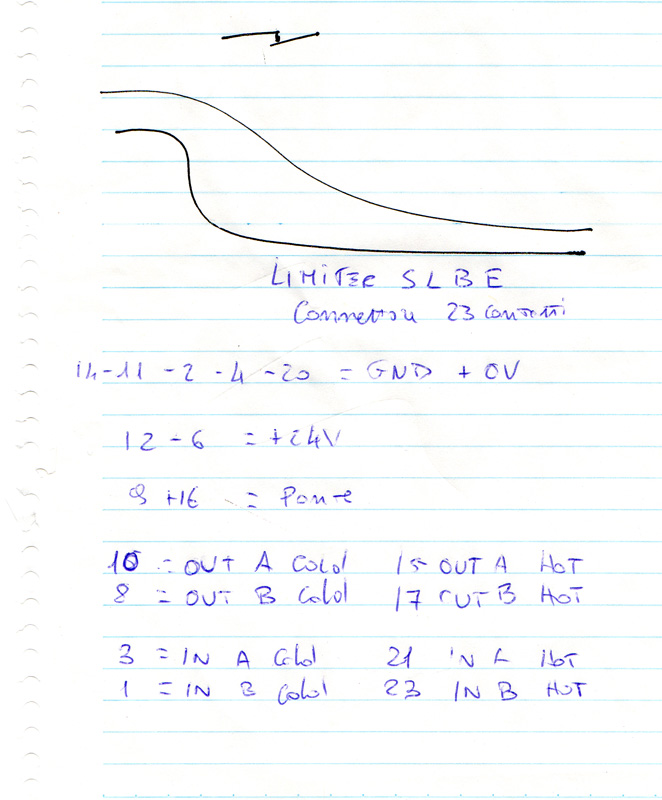 LIMITER SLBE
Connettori 23 contatti
14-11-2-4-20 = GND + 0V
12-6 = +24V
9+16 = Ponte
10 = OUT A Cold 15 OUT A HOT
8 = OUT B Cold 17 OUT B HOT
3 = IN A Cold 21 IN A HOT
1 = IN B Cold 23 IN B HOT